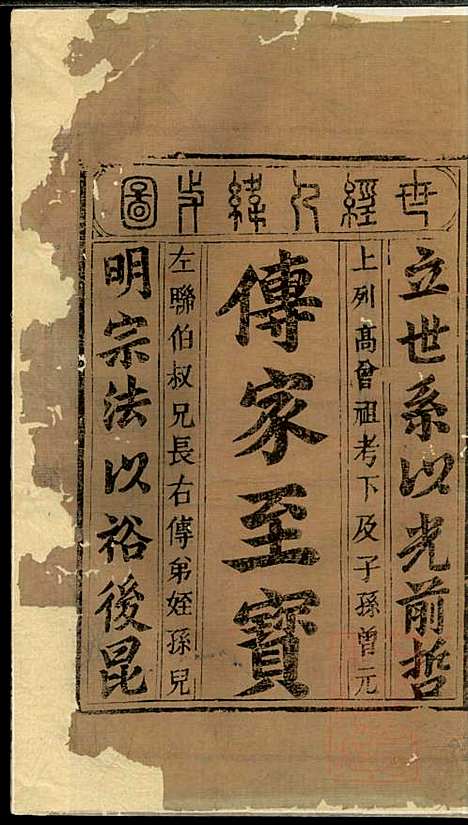 世經人緯史圖
立世系以光前哲
上列高曾祖考下及子孫曾元
傳家至寳
左聯伯叔兄長右傳弟姪孫兒
明宗法以裕後昆